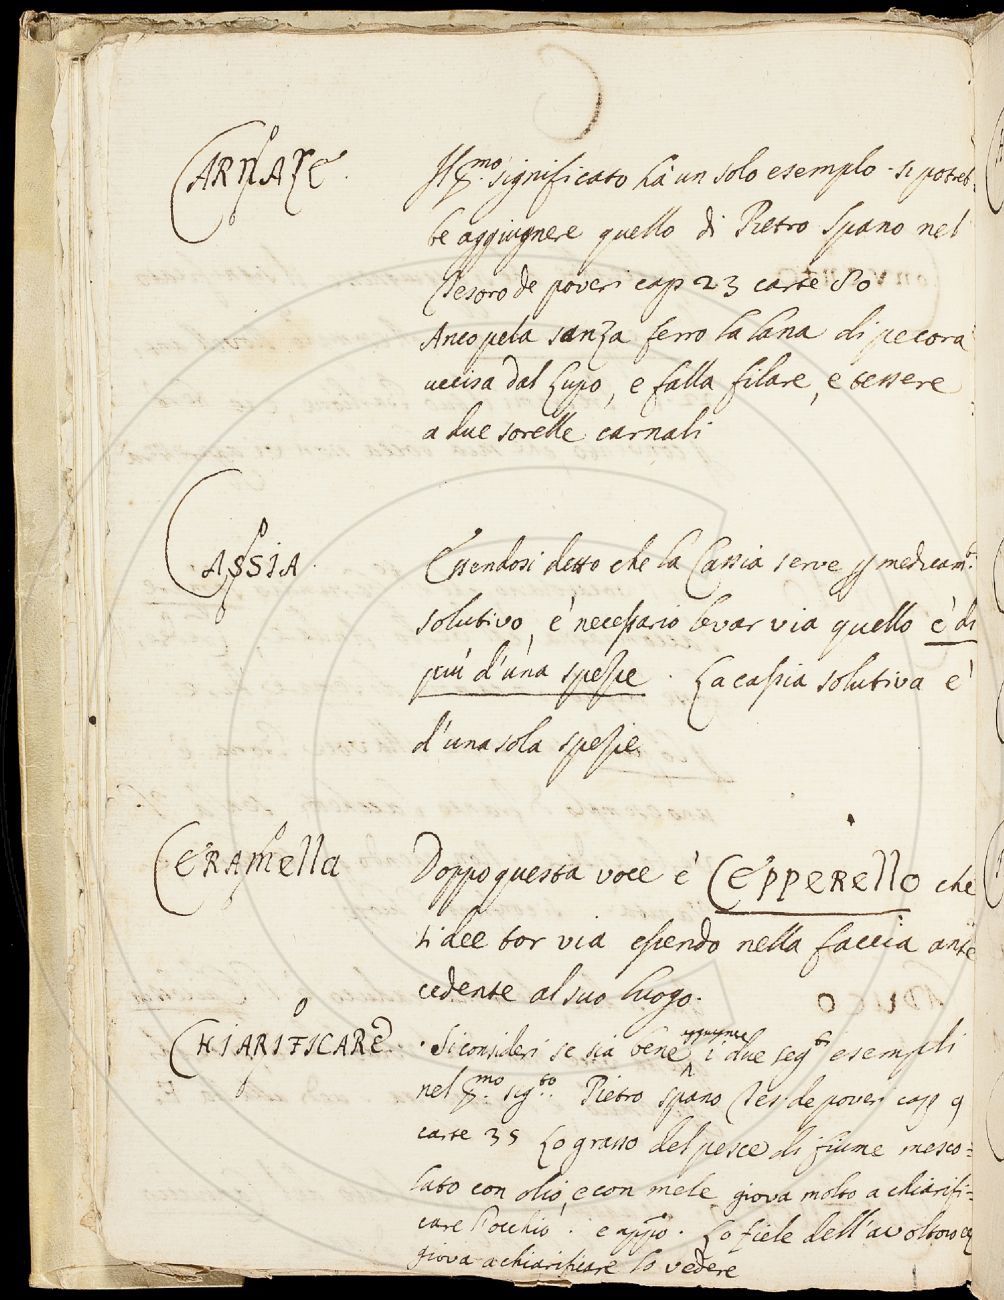 CARNALE. Il p.mo significato hà un solo esemplo. si potreb
be aggiugnere quello di Pietro Spano nel
Tesoro de poveri cap 23 carte 80
Anco pela sanza ferro la lana di pecora
uccisa dal Lupo, e falla filare, e tessere
a due sorelle carnali
CASSIA. Essendosi detto che la Cassia serve p medicam.o
solutivo, è necessario levar via quello è di
più d'una spezie. La cassia solutiva è
d'una sola spezie
CERAMELLA Doppo questa voce è CEPPERELLO che
si dee tor via essendo nella faccia ante
cedente al suo luogo.
CHIARIFICARE. Si consideri se sia bene aggiugnere i due seg.ti esempli
nel p.mo sig.to Pietro spano Tes. de poveri cap 9
carte 35 Lo grasso del pesce di fiume mesco=
lato con olio, e con mele giova molto a chiarifi=
care l'occhio. e appo. Lo fiele dell'avoltoio
giova a chiarificare lo vedere